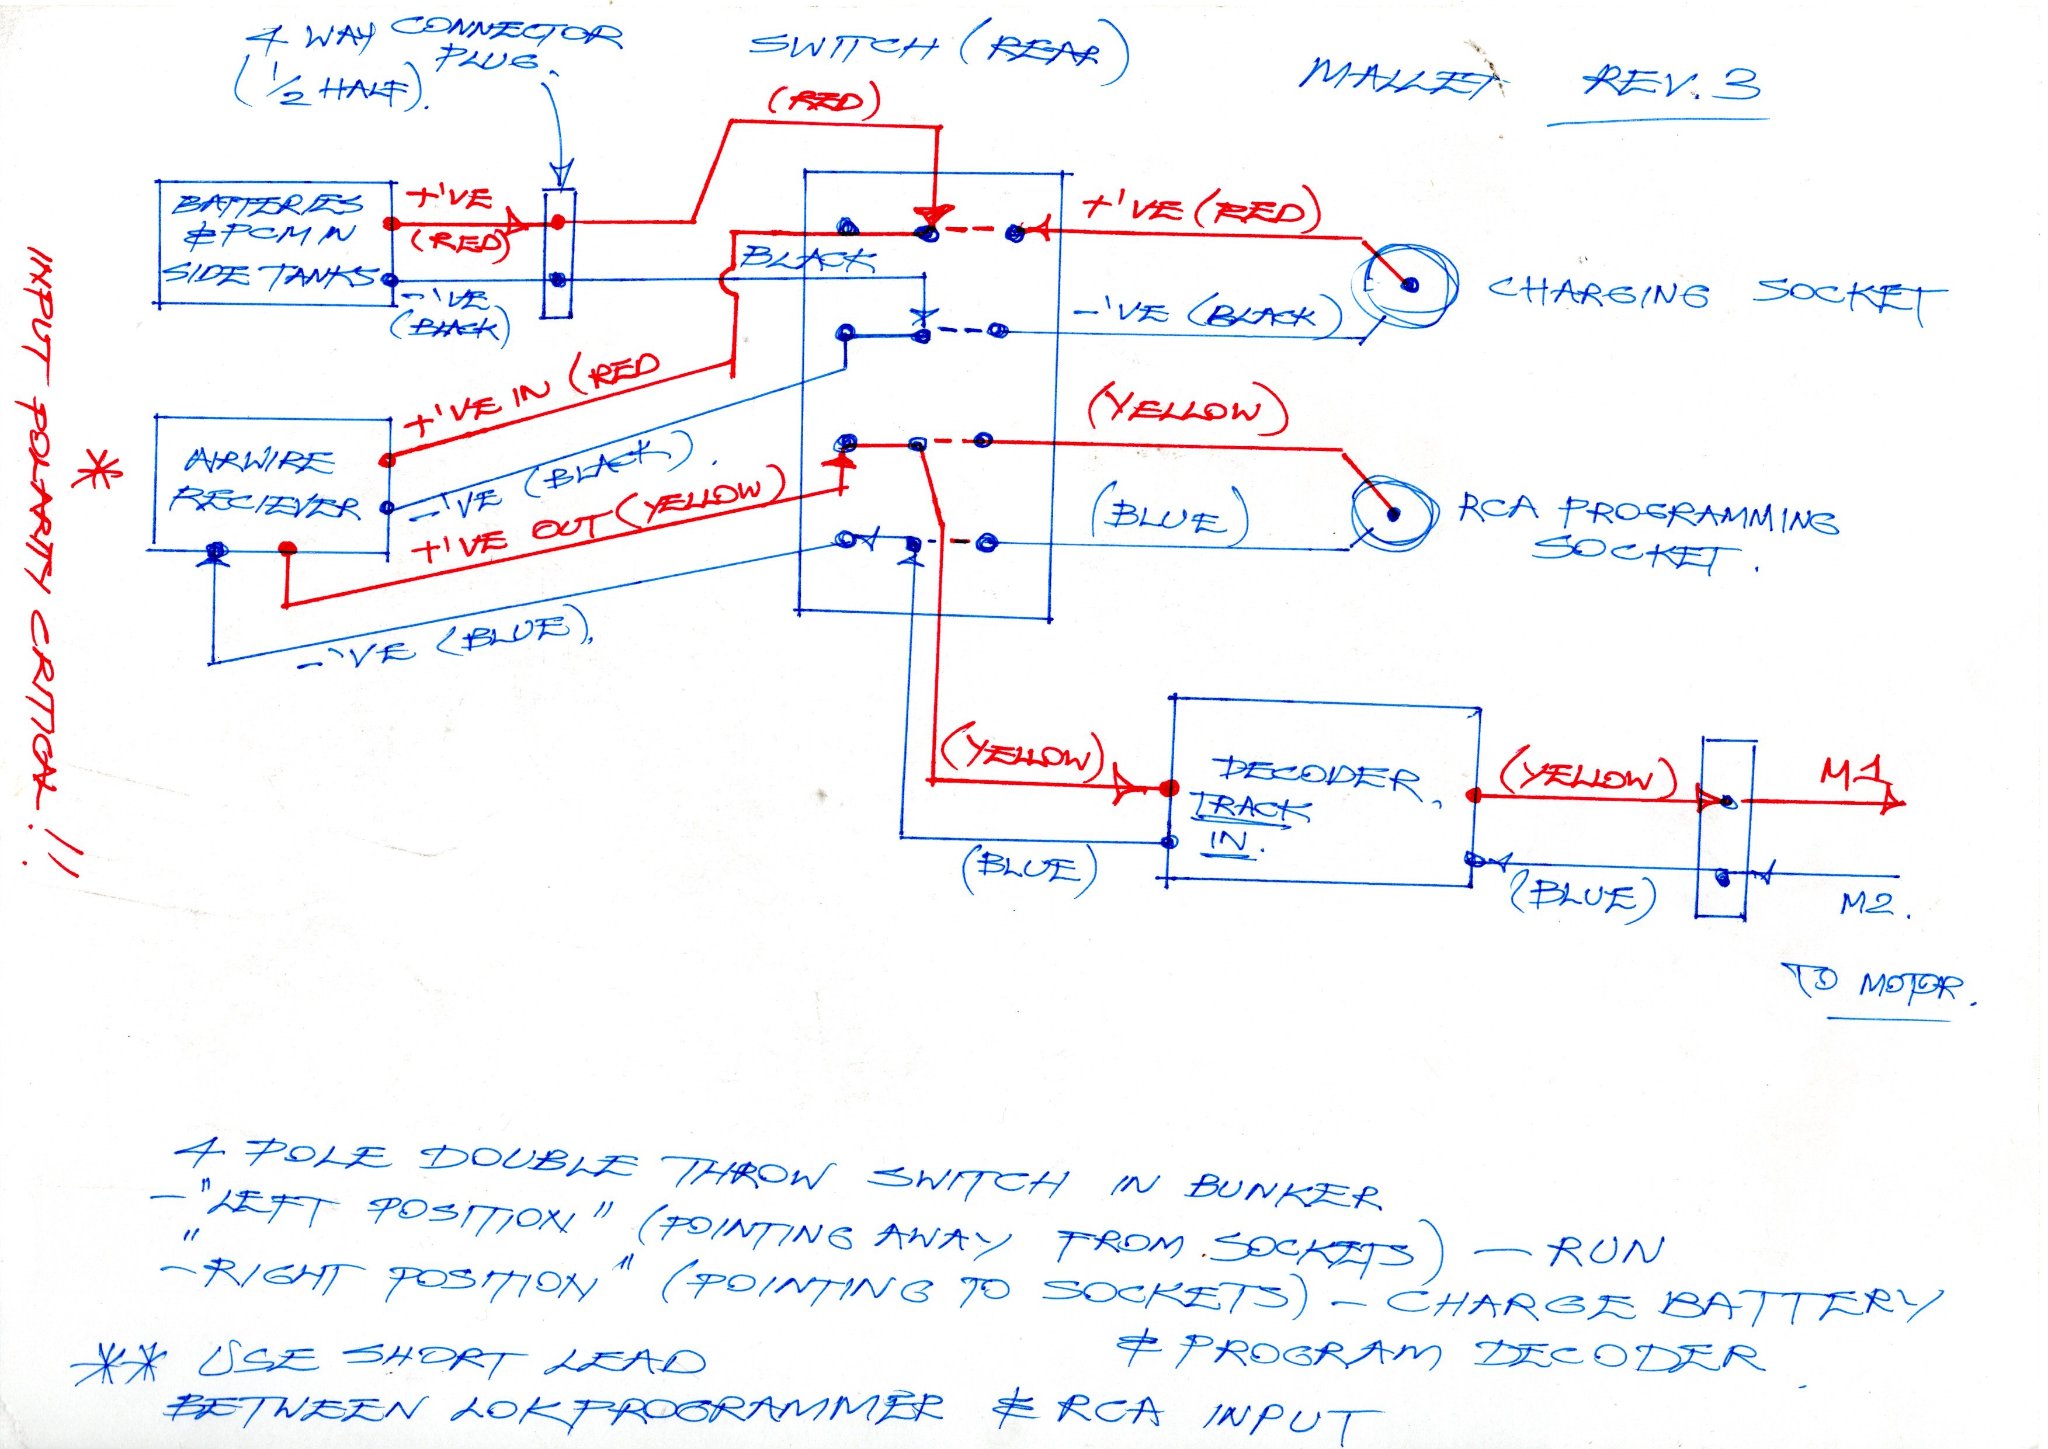 4 WAY CONNECTOR
PLUG.
(1/2 HALF).
SWITCH (REAR)
MALLET REV. 3
(RED)
BATTERIES
& PCM IN
SIDE TANKS
+'VE
(RED)
-'VE
(BLACK)
BLACK
+'VE (RED)
-'VE (BLACK)
CHARGING SOCKET
INPUT POLARITY CRITICAL.!!
*
AIRWIRE
RECIEVER
+'VE IN (RED
-'VE (BLACK).
+'VE OUT (YELLOW)
-'VE (BLUE).
(YELLOW)
(BLUE)
RCA PROGRAMMING
SOCKET.
(YELLOW)
(BLUE)
DECODER.
TRACK
IN.
(YELLOW)
(BLUE)
M1
M2.
TO MOTOR.
4 POLE DOUBLE THROW SWITCH IN BUNKER
-"LEFT POSITION" (POINTING AWAY FROM SOCKETS) - RUN
-"RIGHT POSITION" (POINTING TO SOCKETS) - CHARGE BATTERY
& PROGRAM DECODER.
** USE SHORT LEAD
BETWEEN LOKPROGRAMMER & RCA INPUT